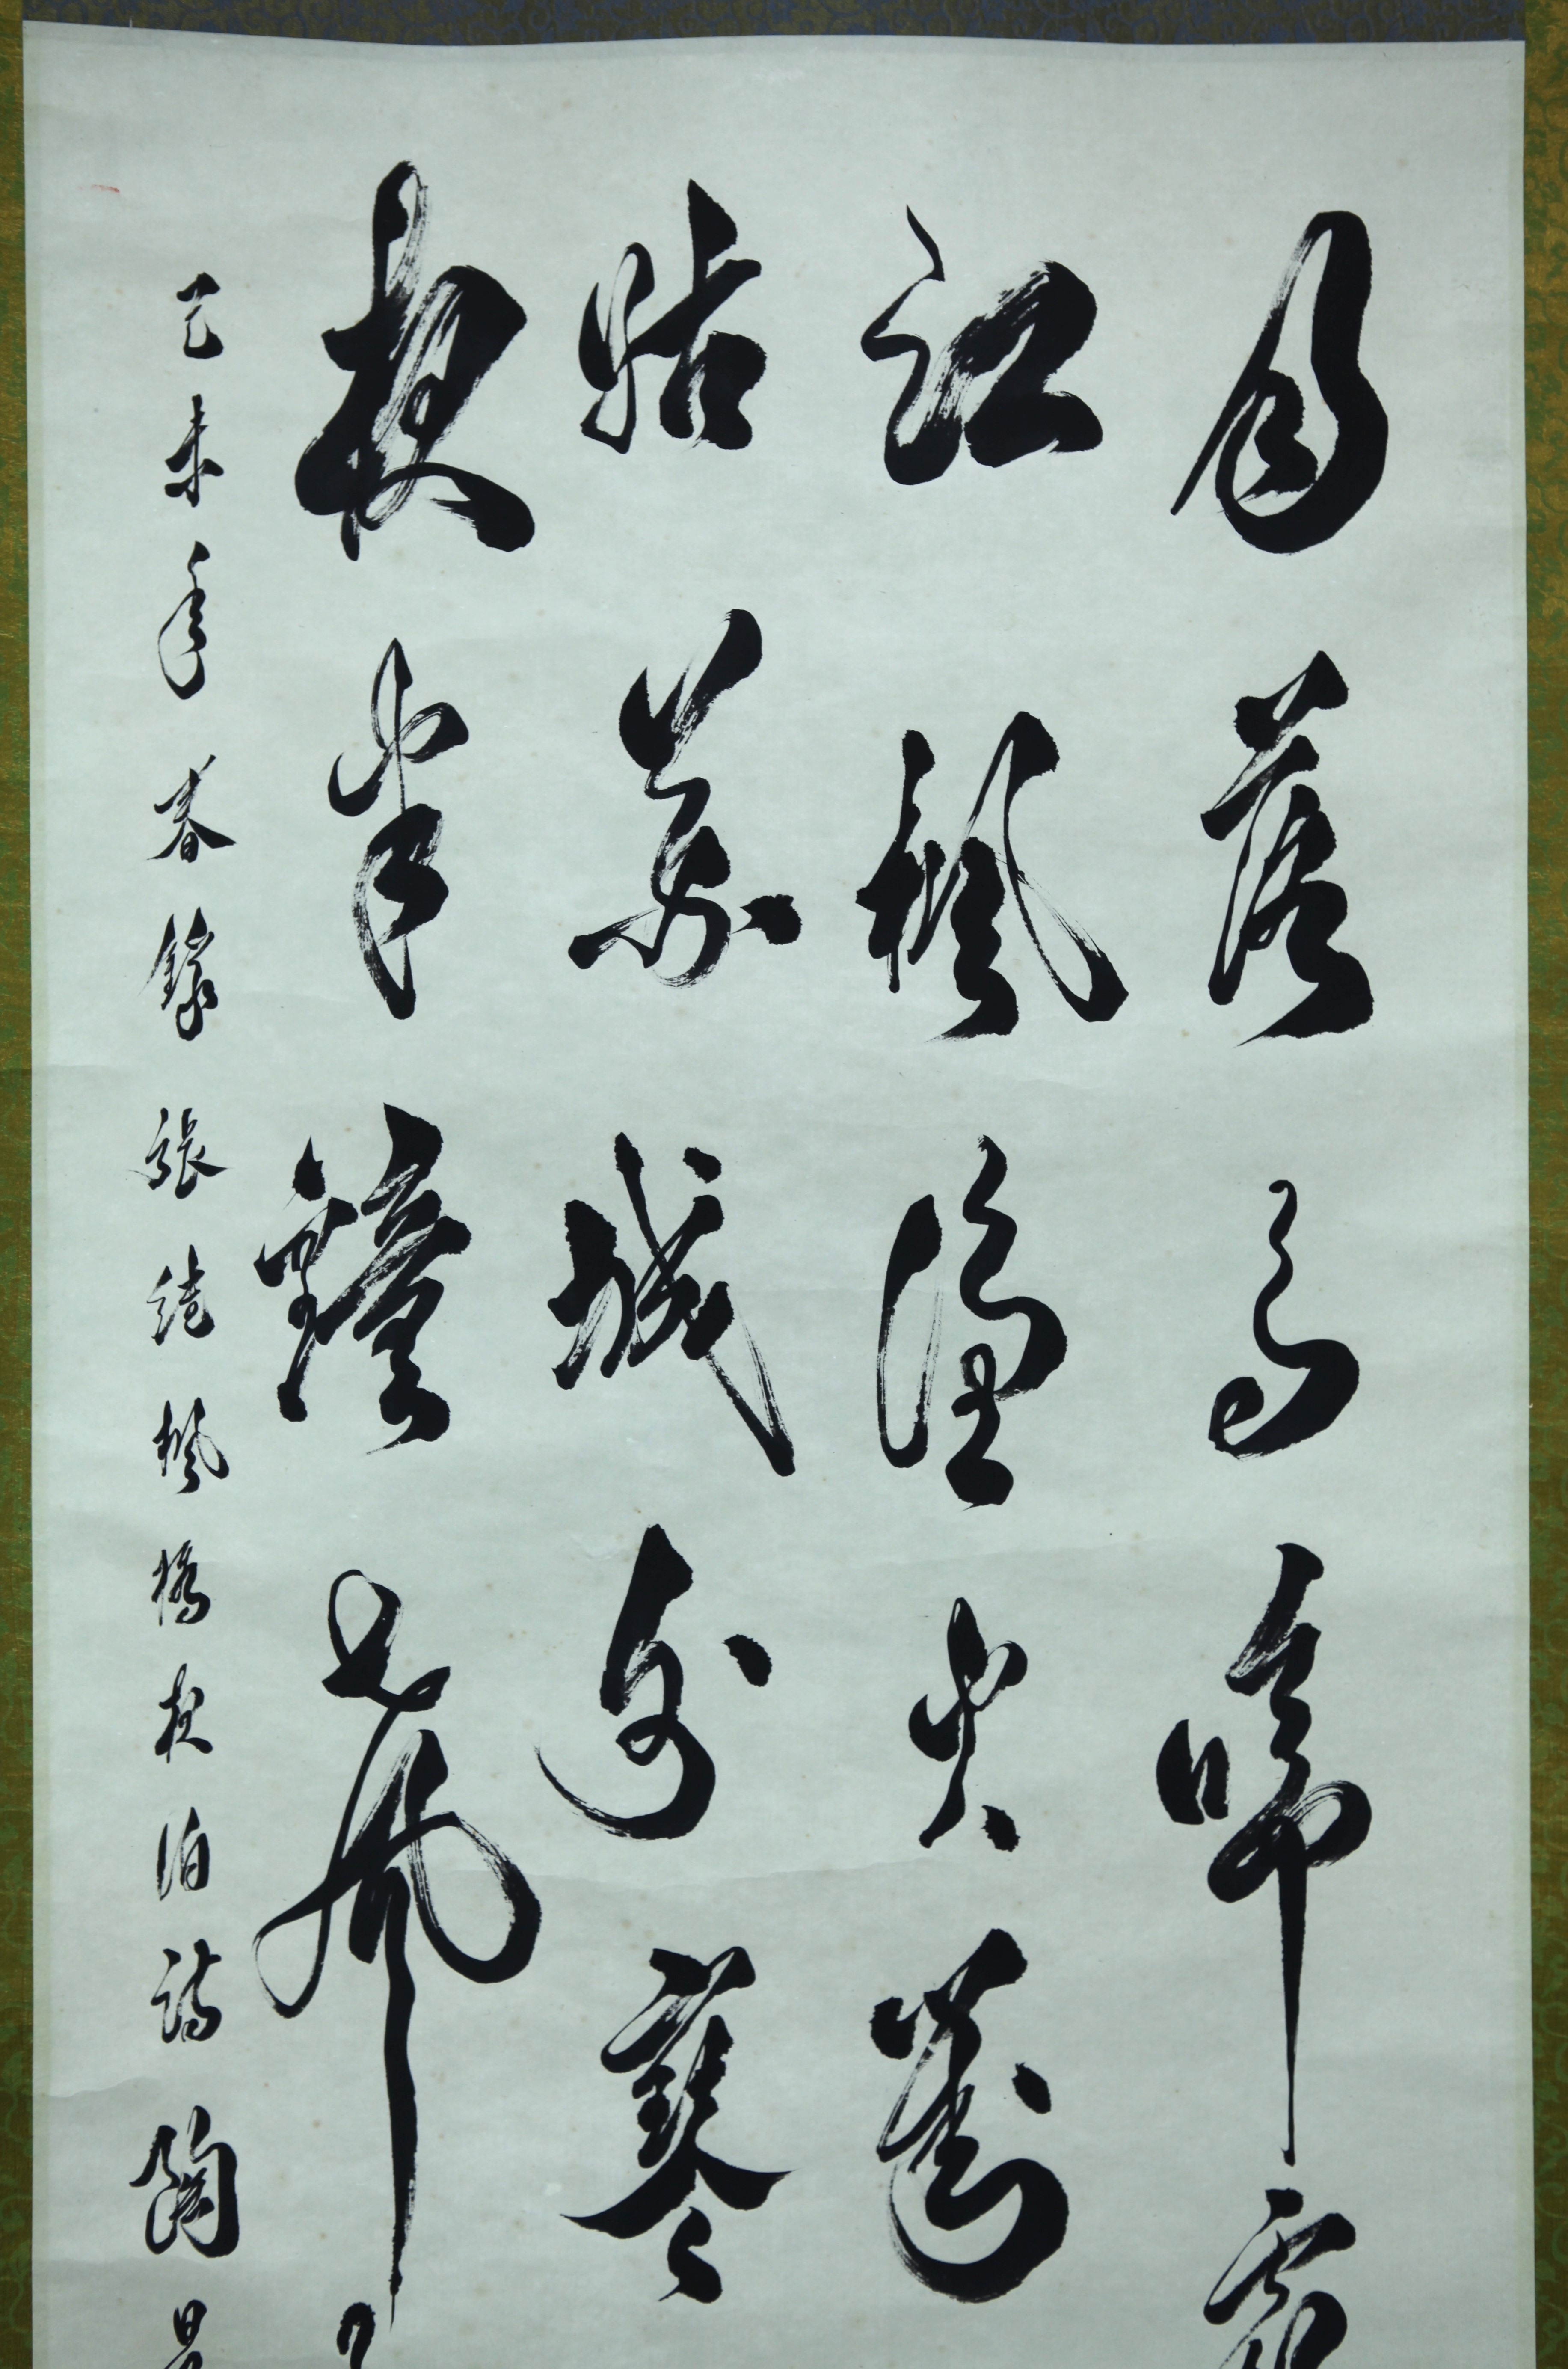 月落烏啼霜
江楓漁火對
姑蘇城外寒
夜半鐘聲
己未年春錄張継楓橋夜泊詩陶